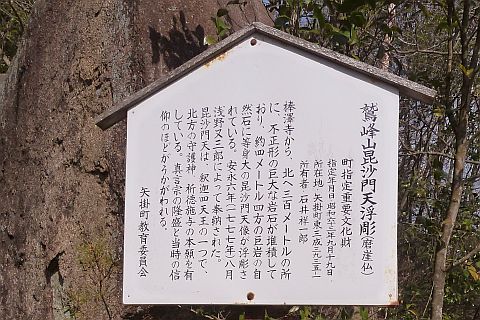 鷲峰山毘沙門天浮彫(磨崖仏)
町指定重要文化財
指定年月日 昭和六三年九月十九日
所在地 矢掛町東三成三九三五ー一
所有者 石井祥一郎
棒澤寺から、北へ三百メートルの所
に、不正形の巨大な岩石が堆積して
おり、約四メートル四方の巨岩の自
然石に等身大の毘沙門天像が浮彫さ
れている。安永六年(一七七七年)八月
浅野又三郎によって奉納された。
毘沙門天は、釈迦四天王の一つで、
北方の守護神、祈徳施与の本願を有
している。真言宗の隆盛と当時の信
仰のほどがうかがわれる。
矢掛町教育委員会